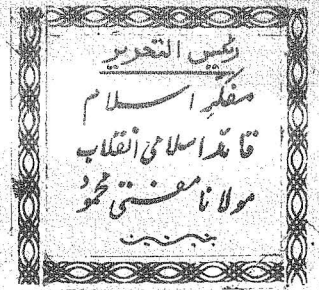 رئیس التحریر
مفکرِ اسلام
قائد اسلامی انقلاب
مولانا مفتی محمودؒ